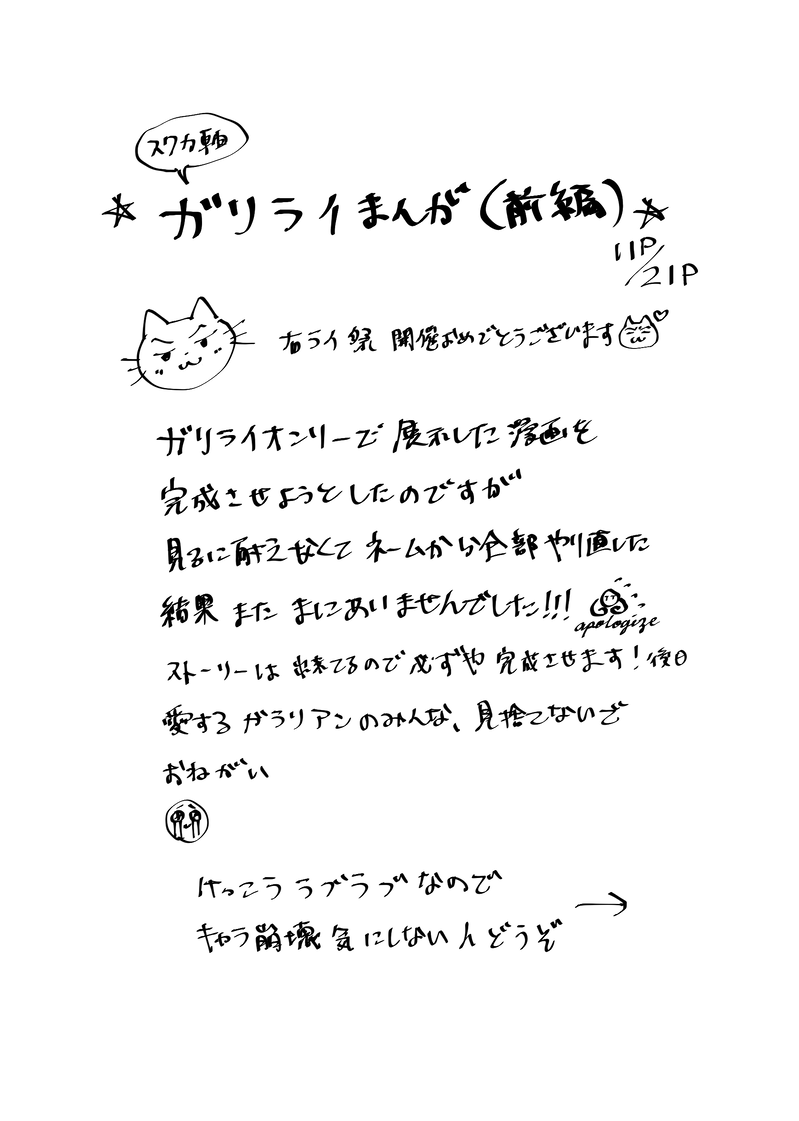 スワカ軸
☆ ガリライまんが(前編)☆
11P/21P
右ライ祭 開催おめでとうございます
ガリライオンリーで 展示した漫画を
完成させようとしたのですが
見るに耐えなくて ネームから全部やり直した
結果 また まにあいませんでした!!!
apologize
ストーリーは 出来てるので 必ずや 完成させます!後日
愛する ガラリアンのみんな、見捨てないで
おねがい
けっこう ラブラブ なので
キャラ崩壊 気にしない人 どうぞ →